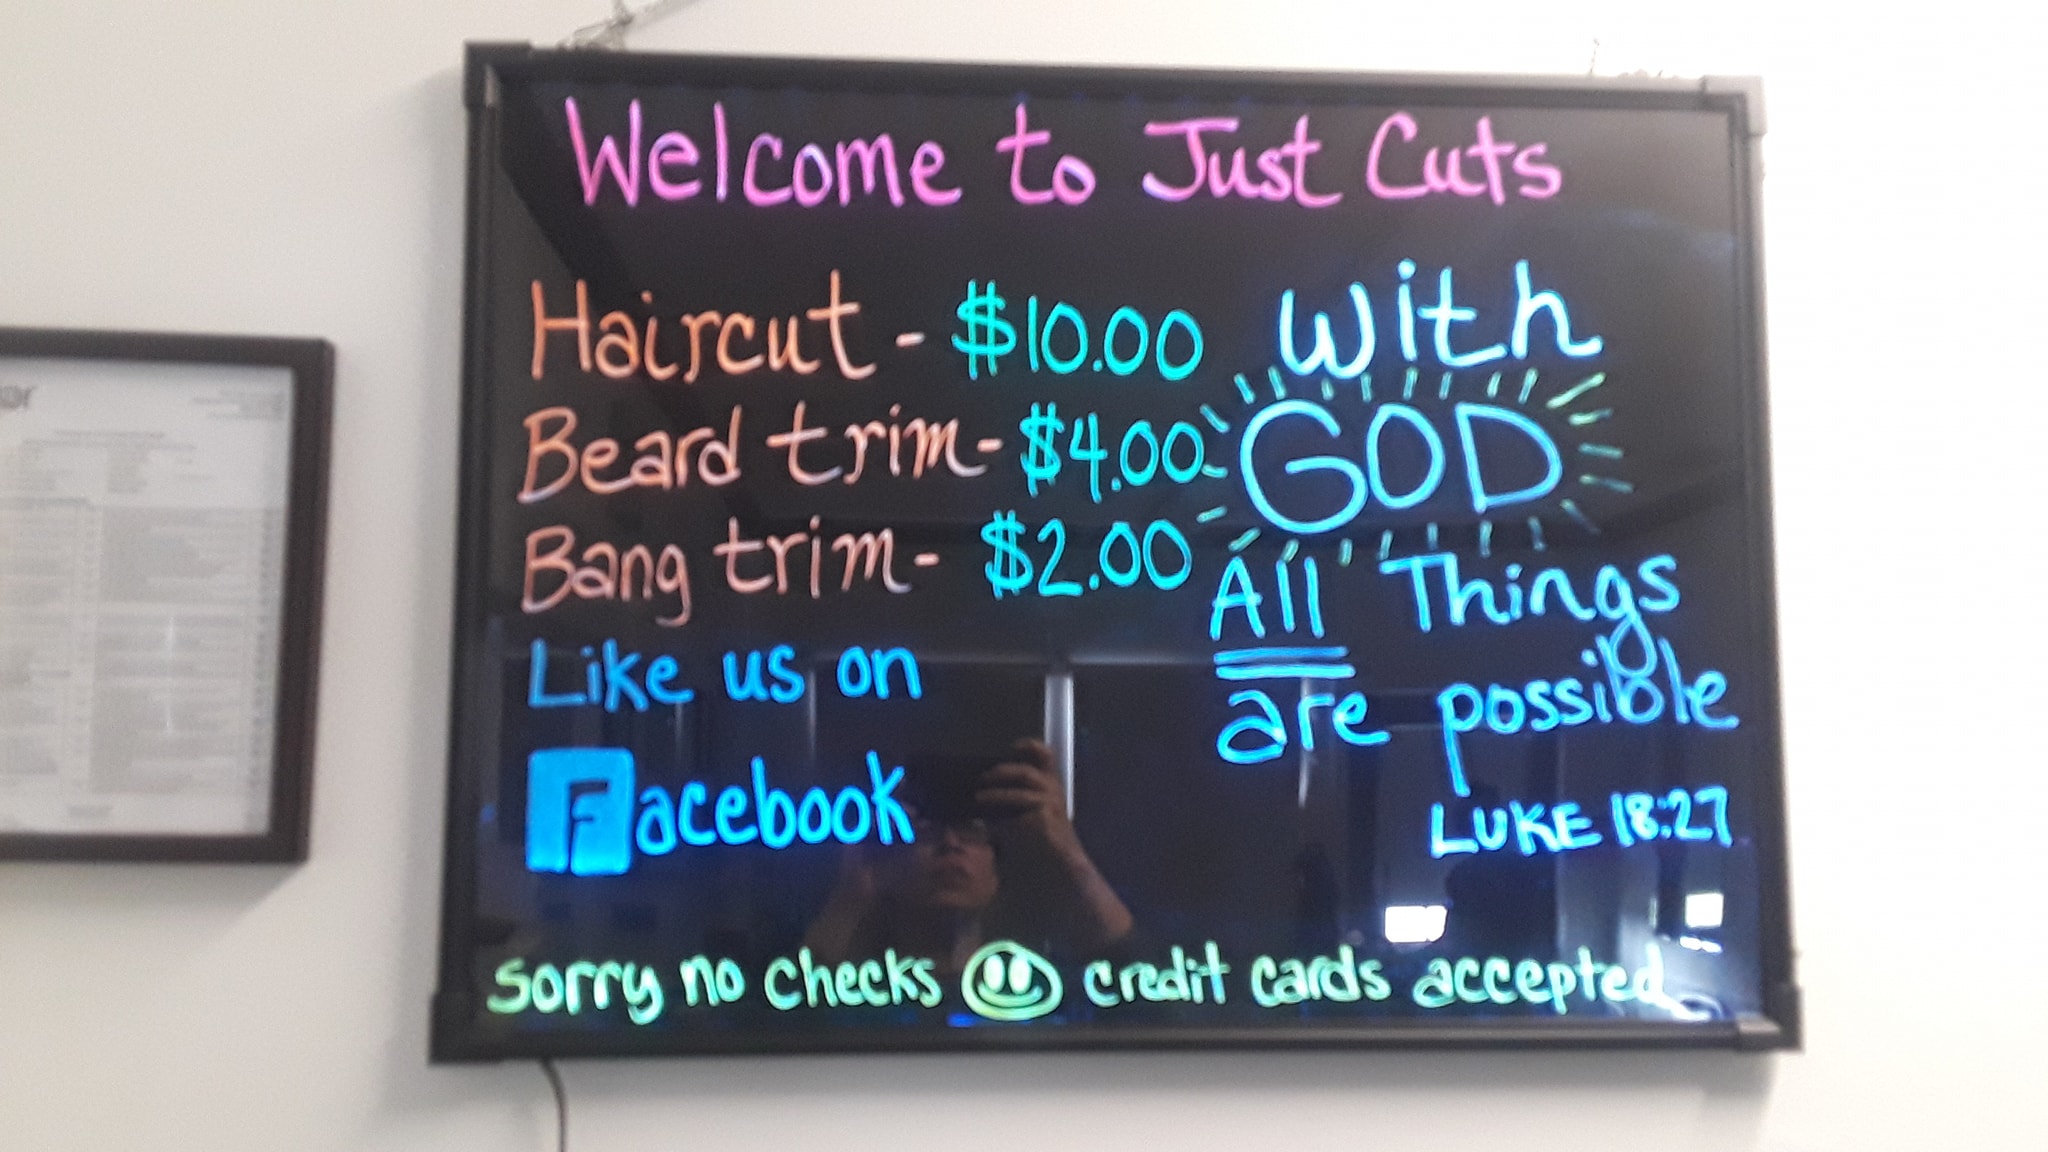 Welcome to Just Cuts
Haircut - $10.00
Beard trim - $4.00
Bang trim - $2.00
Like us on
Facebook
With
GOD
All Things
are possible
LUKE 18:27
Sorry no checks credit cards accepted